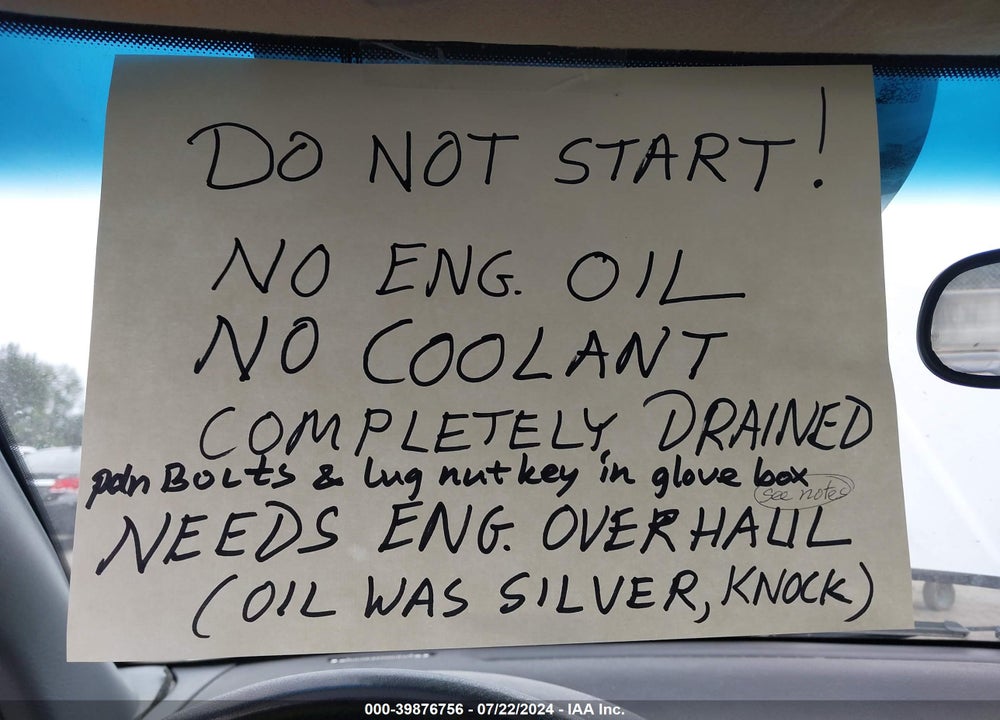 DO NOT START!
NO ENG. OIL
NO COOLANT
COMPLETELY DRAINED
pdn BOLTS & lug nut key in glove box
see notes
NEEDS ENG. OVERHAUL
(OIL WAS SILVER, KNOCK)
000-39876756 - 07/22/2024 - IAA Inc.